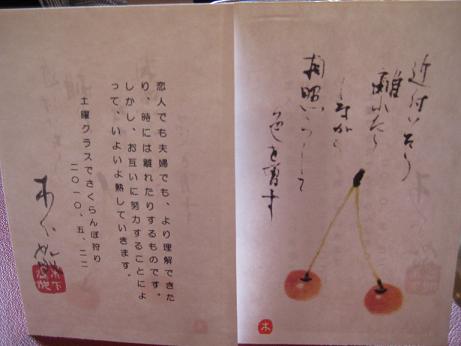 近付いたり
離れたり
しながら
相照らして
色を増す
木
恋人でも夫婦でも、より理解できた
り、時には離れたりするものです。
しかし、お互いに努力することによ
って、いよいよ熟していきます。
土曜クラスでさくらんぼ狩り
二〇一〇.五.二二